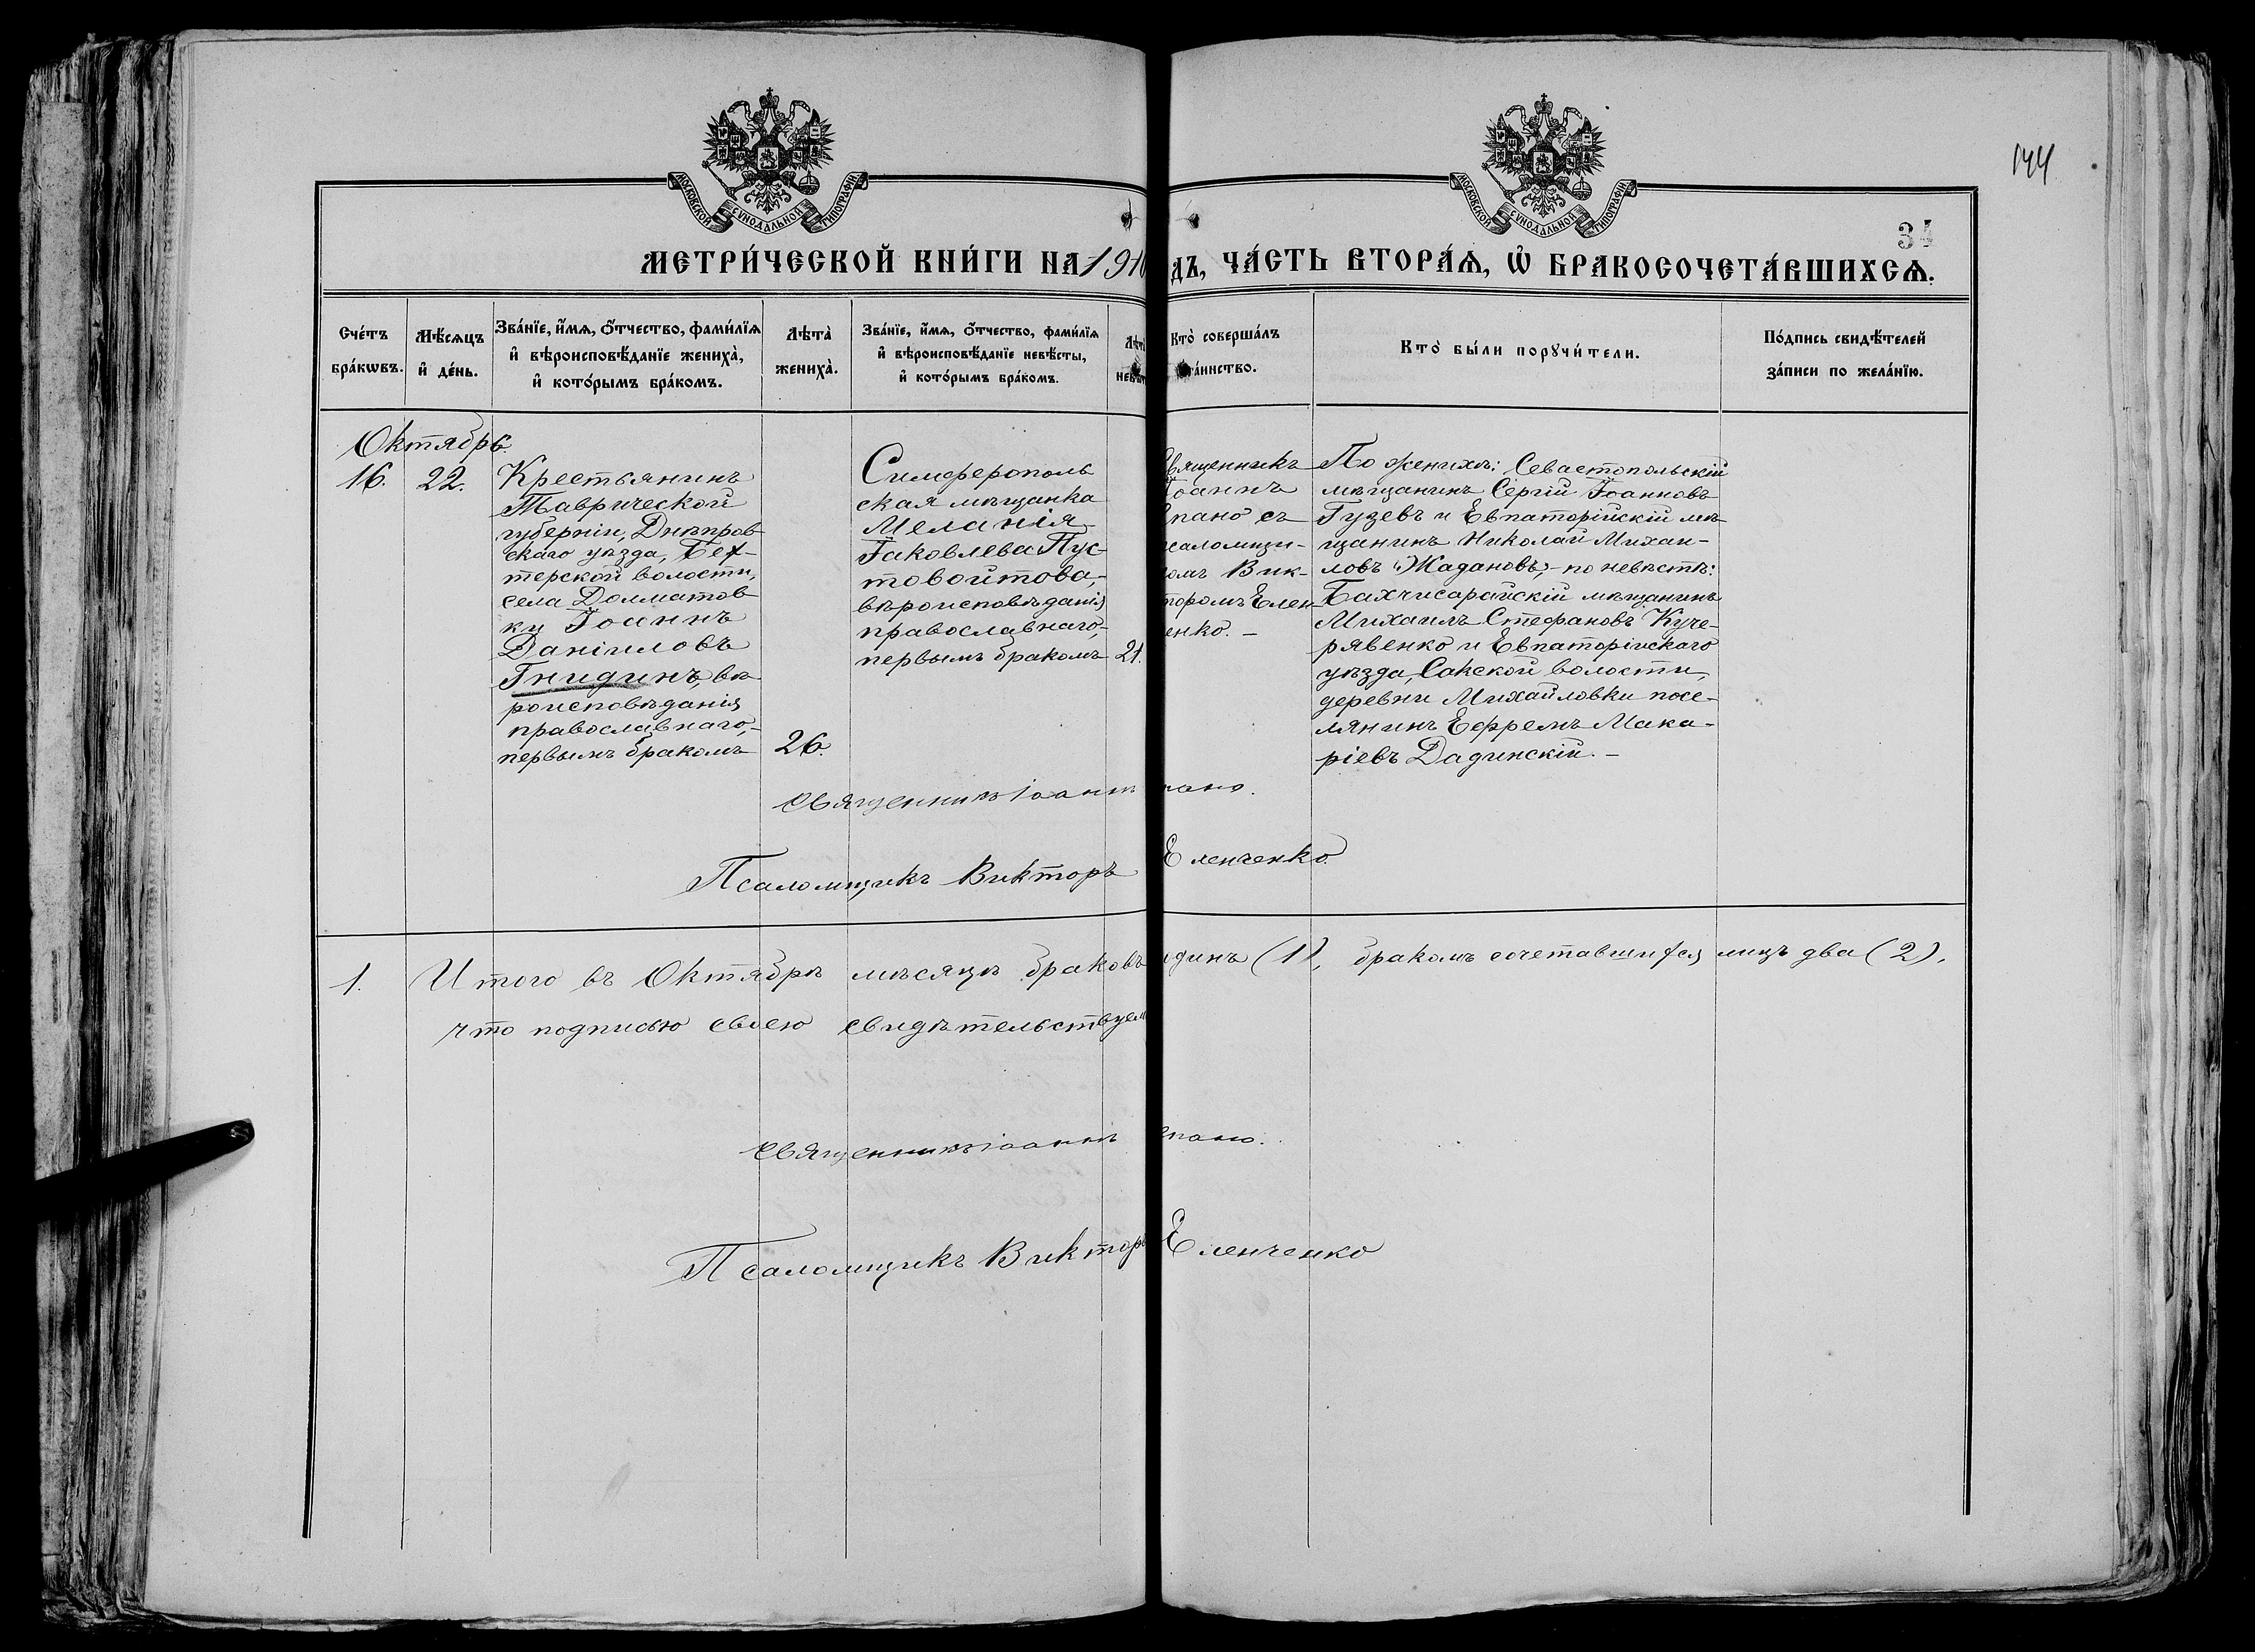 144
34
МОСКОВСКОЙ СѴНОДАЛЬНОЙ ТИПОГРАФІИ
МОСКОВСКОЙ СѴНОДАЛЬНОЙ ТИПОГРАФІИ
МЕТРИ́ЧЕСКОЙ КНИ́ГИ НА 191
ДЪ, ЧА́СТЬ ВТОРА́Ѧ, Ѡ҆ БРАКОСОЧЕТА́ВШИХСѦ.
Сче́тъ
бра́кѡвъ.
Мѣ́сѧцъ
и҆ де́нь.
Зва́нїе, и҆́мѧ, ѻ҆́тчество, фами́лїѧ
и҆ вѣроисповѣ́данїе жениха̀,
и҆ кото́рымъ бра́комъ.
Лѣта̀
жениха̀.
Зва́нїе, и҆́мѧ, ѻ҆́тчество, фами́лїѧ
и҆ вѣроисповѣ́данїе невѣ́сты,
и҆ кото́рымъ бра́комъ.
Лѣт
нев
Кто̀ соверша́лъ
та́инство.
Кто̀ бы́ли порꙋчи́тели.
По́дпись свидѣ́телей
за́писи по жела́нїю.
Октябрь
16.
22.
Крестьянинъ
Таврической
губерніи, Днѣпров-
скаго уѣзда, Бех-
терской волости,
села Долматов-
ки Іоаннъ
Даніиловъ
Гнидинъ, вѣ-
роисповѣданія
православнаго,
первымъ бракомъ
26.
Симферополь
ская мѣщанка
Меланія
Іаковлева Пус-
товойтова,
вѣроисповѣданія
православнаго,
первымъ бракомъ
21.
Священникъ
Іоаннъ
пано съ
саломщи-
омъ Вик-
торомъ Елен-
енко. –
По женихѣ: Севастопольскій
мѣщанинъ Сергій Іоанновъ
Гузевъ и Евпаторійскій мѣ-
щанинъ Николай Михаи-
ловъ Жадановъ; – по невѣстѣ:
Бахчисарайскій мѣщанинъ
Михаилъ Стефановъ Куче-
рявенко и Евпаторійскаго
уѣзда, Сакской волости,
деревни Михайловки посе-
лянинъ Ефремъ Мака-
ріевъ Дадинскій. –
Священникъ Іоаннъ пано.
Псаломщикъ Викторъ Еленченко.
1. Итого въ Октябрѣ мѣсяцѣ браковъ одинъ (1), бракомъ сочетавшихся лицъ два (2),
что подписью своею свидѣтельствуем
Священникъ Іоаннъ пано.
Псаломщикъ Викторъ Еленченко